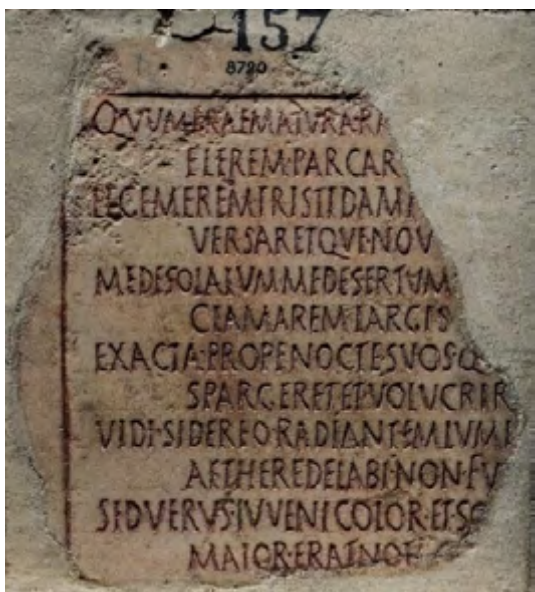 157
8790
QVVM·PRAEMATVRA·RA
FLEREM·PARCAR
ET·GEMEREM·TRISTI·DAM
VERSARETQVE·NOV
ME·DESOLATVM·ME·DESERTVM
CLAMAREM·LARGIS
EXACTA·PROPE·NOCTE·SVOS·Q
SPARGERET·ET·VOLVCRI·R
VIDI·SIDEREO·RADIANTEM·LVMI
AETHERE·DELABI·NON·FV
SED·VERVS·IVVENI·COLOR·ET·SO
MAIOR·ERAT·NOT